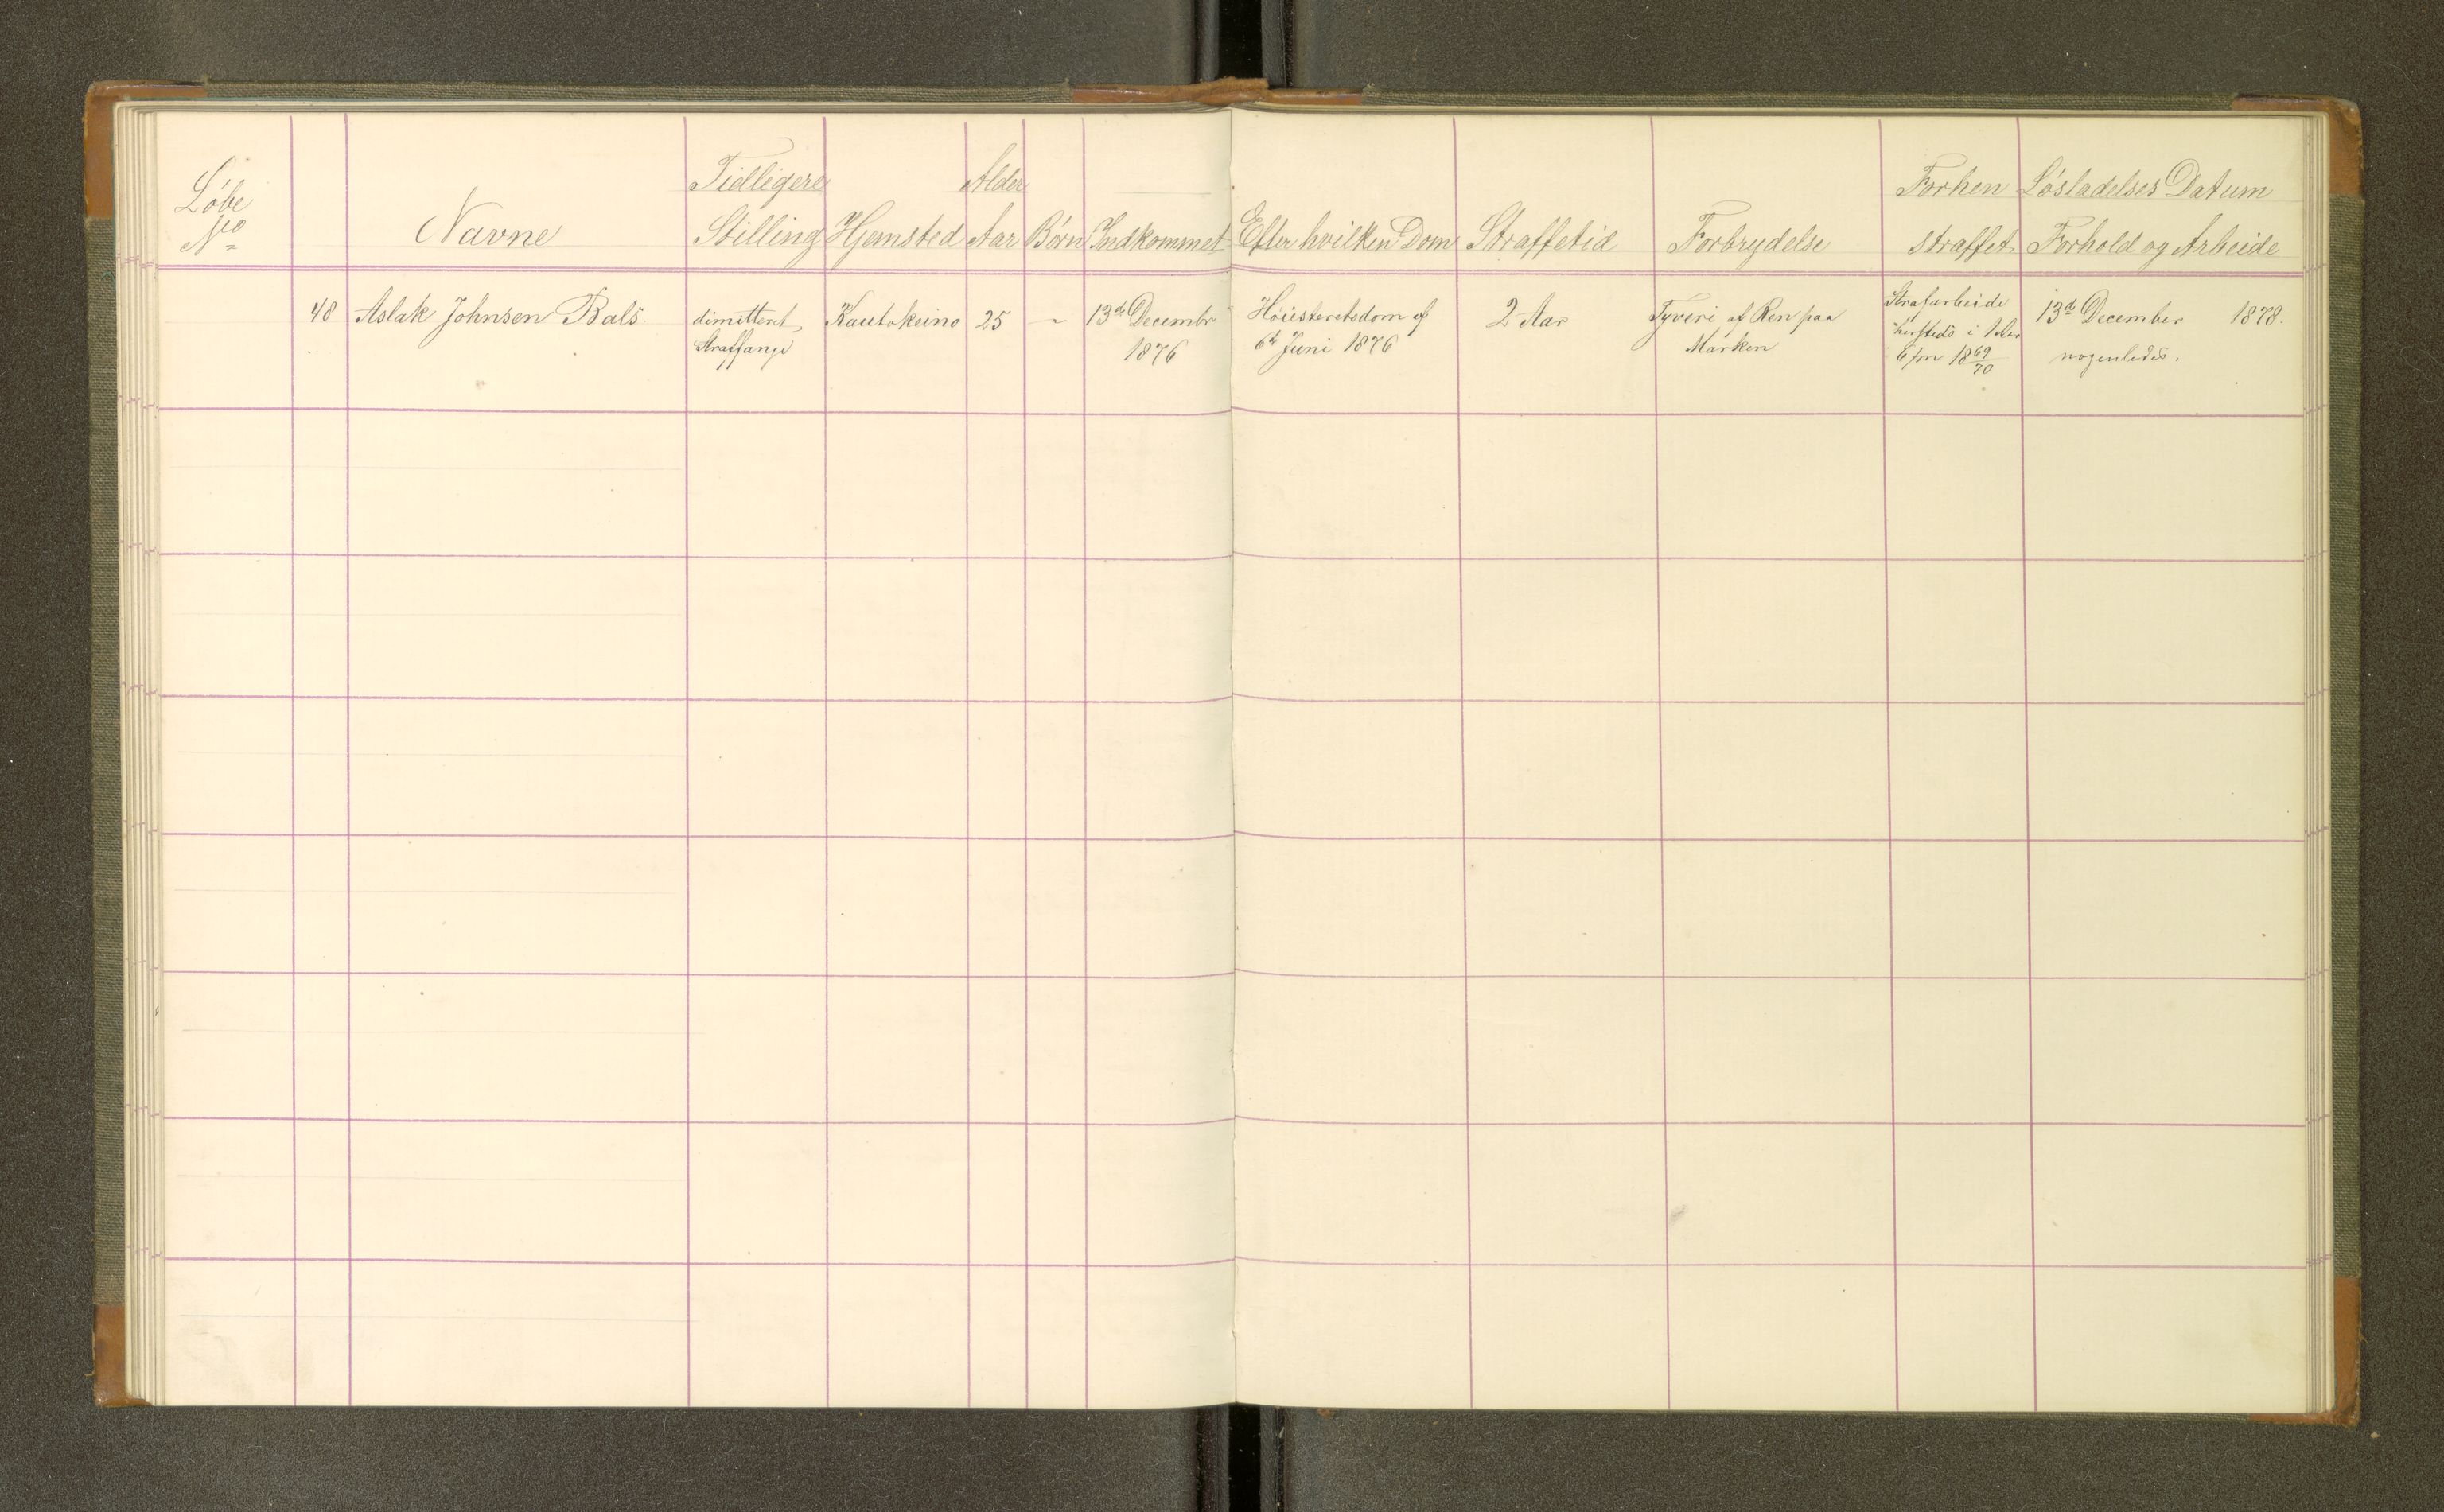 Løbe
No
Navne
Tidligere
Stilling
Hjemsted
Alder
Aar
Børn
Indkommet
Efter hvilken Dom
Straffetid
Forbrydelse
Forhen
straffet
Løsladelses Datum
Forhold og Arbeide
48
Aslak Johnsen Bals
dimitteret
Straffange
Kautokeino
25
-
13de Decembr
1876
Høiesteretsdom af
6te Juni 1876
2 Aar
Tyveri af Ren paa
Marken
Strafarbeide
hersteds i 1 Aar
6 fra 1869/70
13de December 1878.
nogenledes.